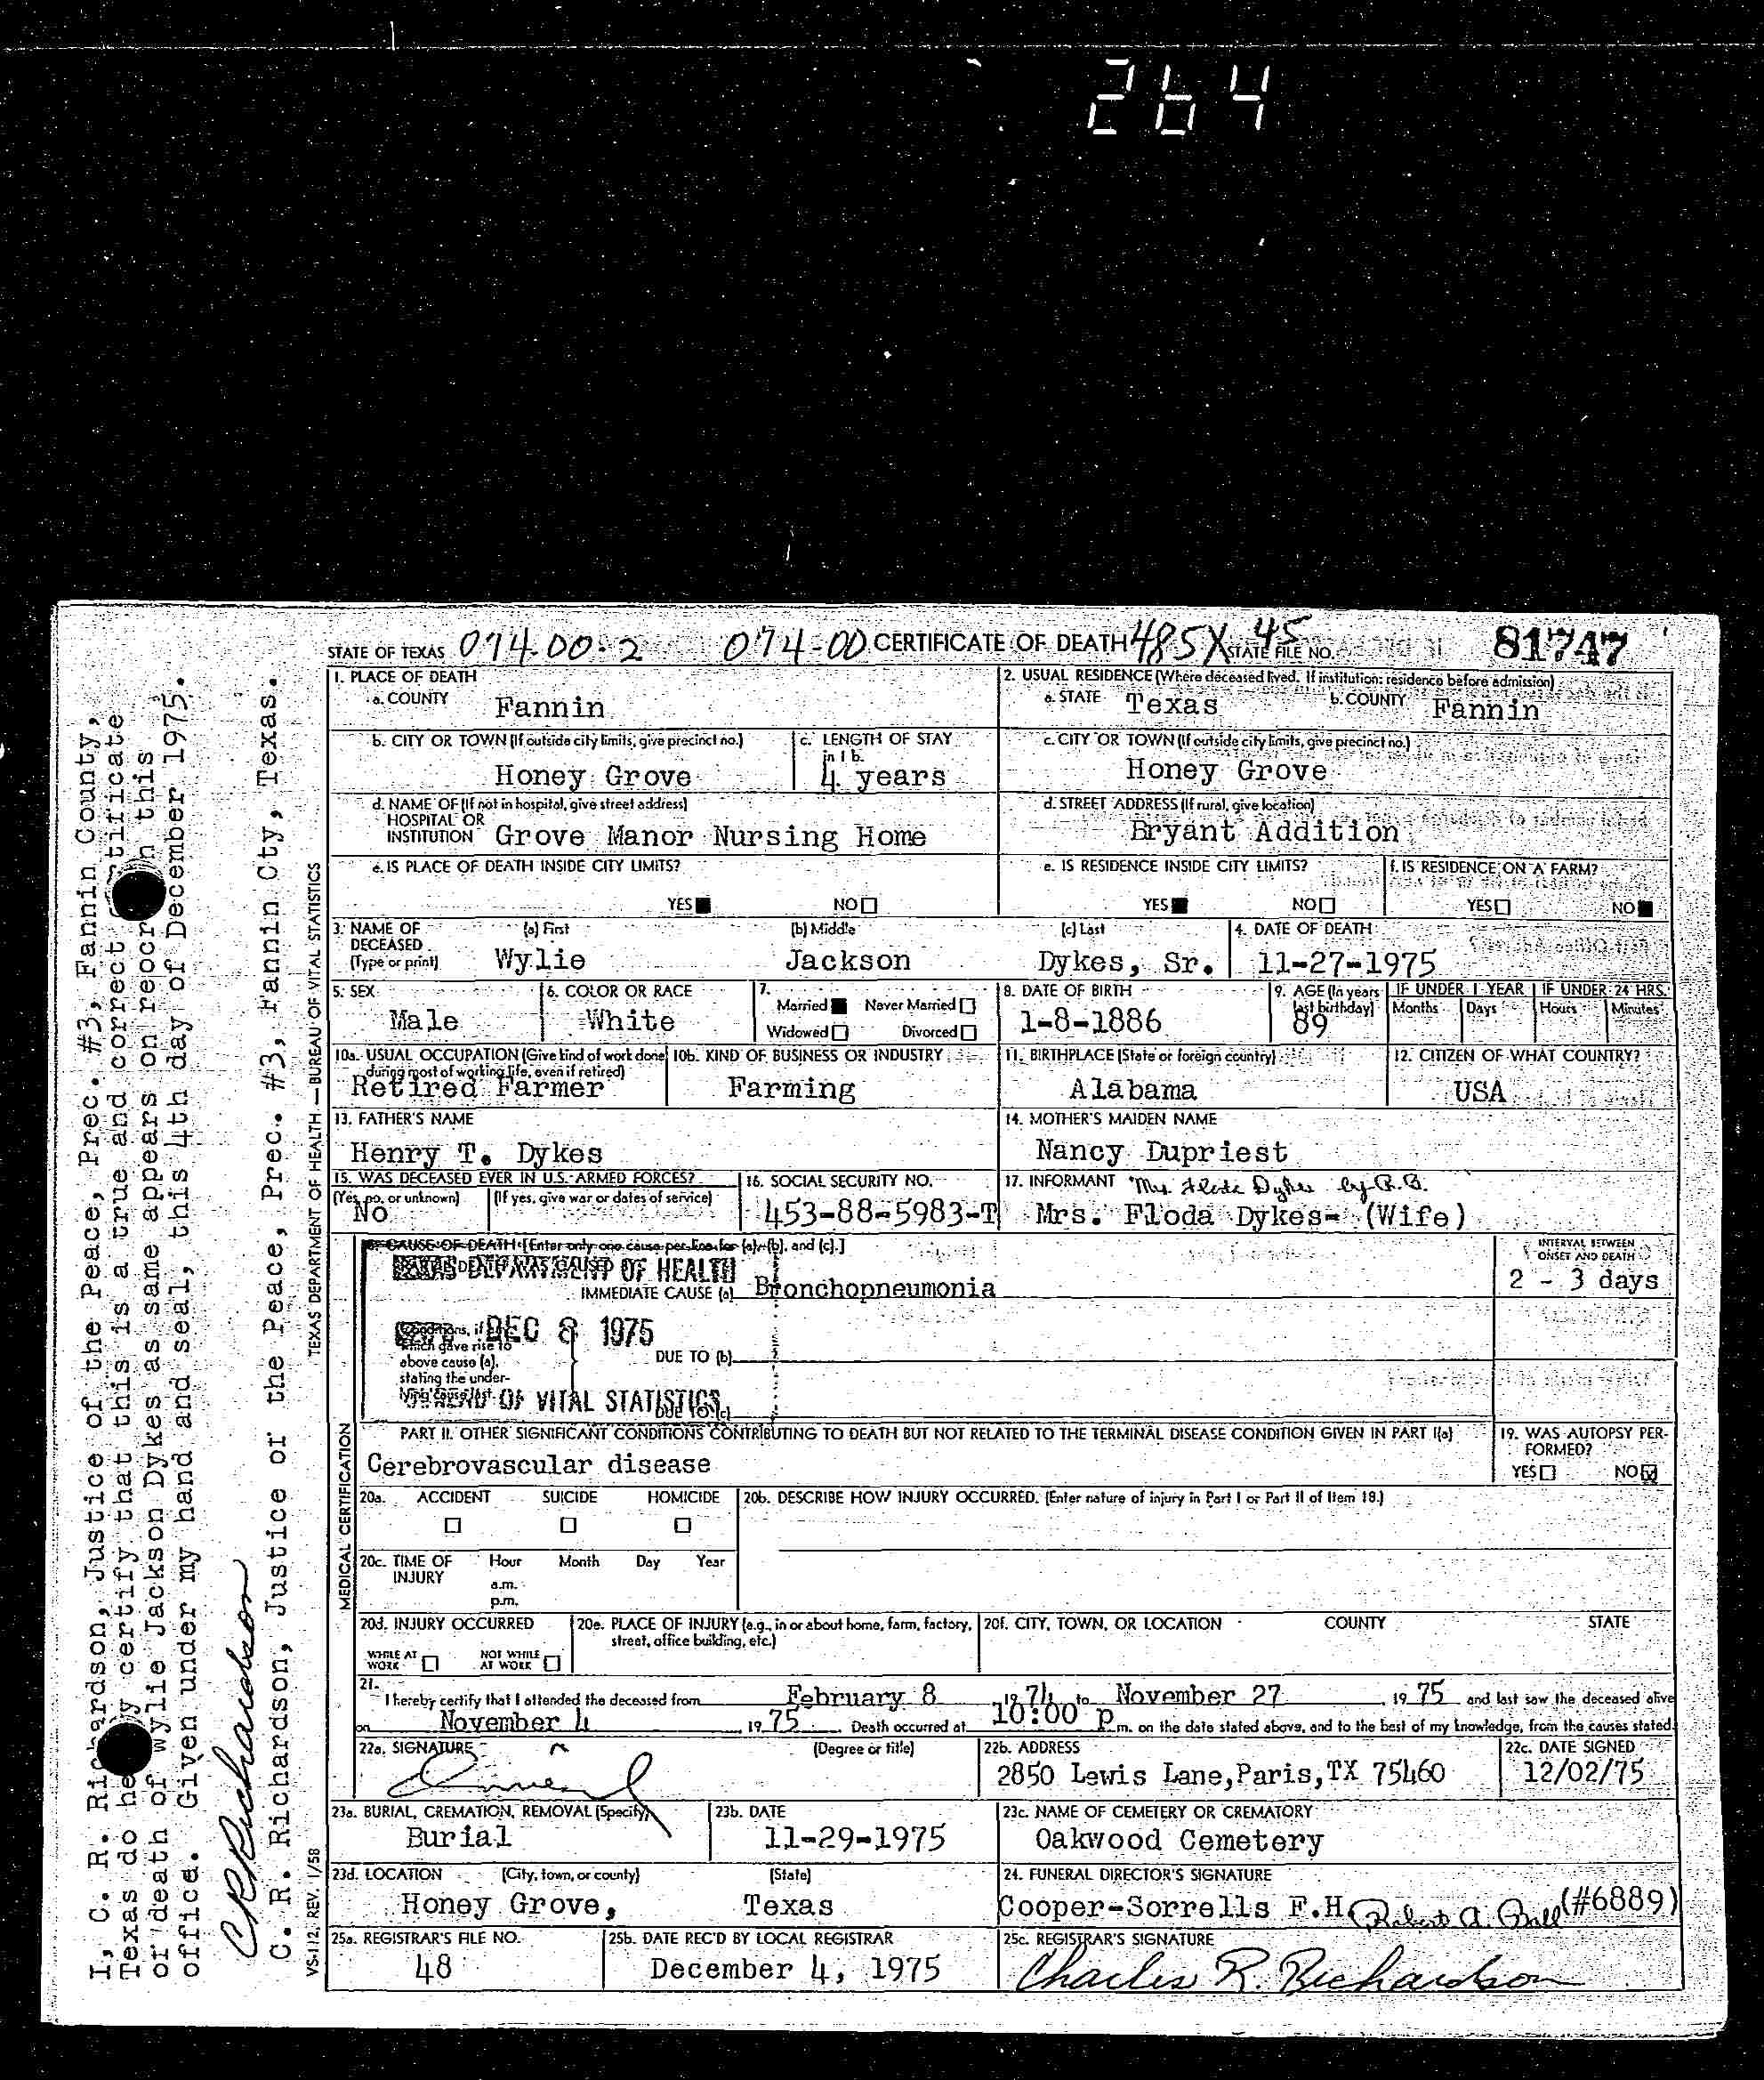 264
STATE OF TEXAS 074-00-2 074-00 CERTIFICATE OF DEATH 485X 45 STATE FILE NO. 81747
1. PLACE OF DEATH
a. COUNTY Fannin
2. USUAL RESIDENCE (Where deceased lived. If institution: residence before admission)
a. STATE Texas b. COUNTY Fannin
b. CITY OR TOWN (If outside city limits, give precinct no.)
Honey Grove
c. LENGTH OF STAY
in 1b.
4 years
c. CITY OR TOWN (If outside city limits, give precinct no.)
Honey Grove
d. NAME OF (If not in hospital, give street address)
HOSPITAL OR
INSTITUTION Grove Manor Nursing Home
d. STREET ADDRESS (If rural, give location)
Bryant Addition
e. IS PLACE OF DEATH INSIDE CITY LIMITS?
YES NO
e. IS RESIDENCE INSIDE CITY LIMITS?
YES NO
f. IS RESIDENCE ON A FARM?
YES NO
3. NAME OF (a) First (b) Middle (c) Last
DECEASED
(Type or print) Wylie Jackson Dykes, Sr.
4. DATE OF DEATH
11-27-1975
5. SEX
Male
6. COLOR OR RACE
White
7.
Married Never Married
Widowed Divorced
8. DATE OF BIRTH
1-8-1886
9. AGE (In years
last birthday)
89
IF UNDER 1 YEAR
Months Days
IF UNDER 24 HRS.
Hours Minutes
10a. USUAL OCCUPATION (Give kind of work done
during most of working life, even if retired)
Retired Farmer
10b. KIND OF BUSINESS OR INDUSTRY
Farming
11. BIRTHPLACE (State or foreign country)
Alabama
12. CITIZEN OF WHAT COUNTRY?
USA
13. FATHER'S NAME
Henry T. Dykes
14. MOTHER'S MAIDEN NAME
Nancy Dupriest
15. WAS DECEASED EVER IN U.S. ARMED FORCES?
(Yes, no, or unknown) (If yes, give war or dates of service)
No
16. SOCIAL SECURITY NO.
453-88-5983-T
17. INFORMANT Mrs. Floda Dykes by R.B.
Mrs. Floda Dykes- (Wife)
18. CAUSE OF DEATH [Enter only one cause per line for (a), (b), and (c).]
DEPARTMENT OF HEALTH
IMMEDIATE CAUSE (a) Bronchopneumonia
INTERVAL BETWEEN
ONSET AND DEATH
2 - 3 days
Conditions, if any, DEC 8 1975
which gave rise to
above cause (a),
stating the under-
lying cause last.
DUE TO (b)
OF VITAL STATISTICS
DUE TO (c)
PART II. OTHER SIGNIFICANT CONDITIONS CONTRIBUTING TO DEATH BUT NOT RELATED TO THE TERMINAL DISEASE CONDITION GIVEN IN PART I(a)
Cerebrovascular disease
19. WAS AUTOPSY PER-
FORMED?
YES NO
20a. ACCIDENT SUICIDE HOMICIDE
20b. DESCRIBE HOW INJURY OCCURRED. (Enter nature of injury in Part I or Part II of Item 18.)
20c. TIME OF Hour Month Day Year
INJURY
a.m.
p.m.
20d. INJURY OCCURRED
WHILE AT
WORK
NOT WHILE
AT WORK
20e. PLACE OF INJURY (e.g., in or about home, farm, factory,
street, office building, etc.)
20f. CITY, TOWN, OR LOCATION COUNTY STATE
21.
I hereby certify that I attended the deceased from February 8 1974 to November 27 1975 and last saw the deceased alive
on November 4 1975 Death occurred at 10:00 p.m. on the date stated above, and to the best of my knowledge, from the causes stated.
22a. SIGNATURE (Degree or title)
22b. ADDRESS
2850 Lewis Lane,Paris,TX 75460
22c. DATE SIGNED
12/02/75
23a. BURIAL, CREMATION, REMOVAL (Specify)
Burial
23b. DATE
11-29-1975
23c. NAME OF CEMETERY OR CREMATORY
Oakwood Cemetery
23d. LOCATION (City, town, or county) (State)
Honey Grove, Texas
24. FUNERAL DIRECTOR'S SIGNATURE
Cooper-Sorrells F.H. Robert A. (#6889)
25a. REGISTRAR'S FILE NO.
48
25b. DATE REC'D BY LOCAL REGISTRAR
December 4, 1975
25c. REGISTRAR'S SIGNATURE
Charles R. Richardson
TEXAS DEPARTMENT OF HEALTH — BUREAU OF VITAL STATISTICS
MEDICAL CERTIFICATION
VS-112, REV. 1/58
I, C. R. Richardson, Justice of the Peace, Prec. #3, Fannin County,
Texas do hereby certify that this is a true and correct certificate
of death of Wylie Jackson Dykes as same appears on reocrd in this
office. Given under my hand and seal, this 4th day of December 1975.
CR Richardson
C. R. Richardson, Justice or the Peace, Prec. #3, Fannin Cty, Texas.